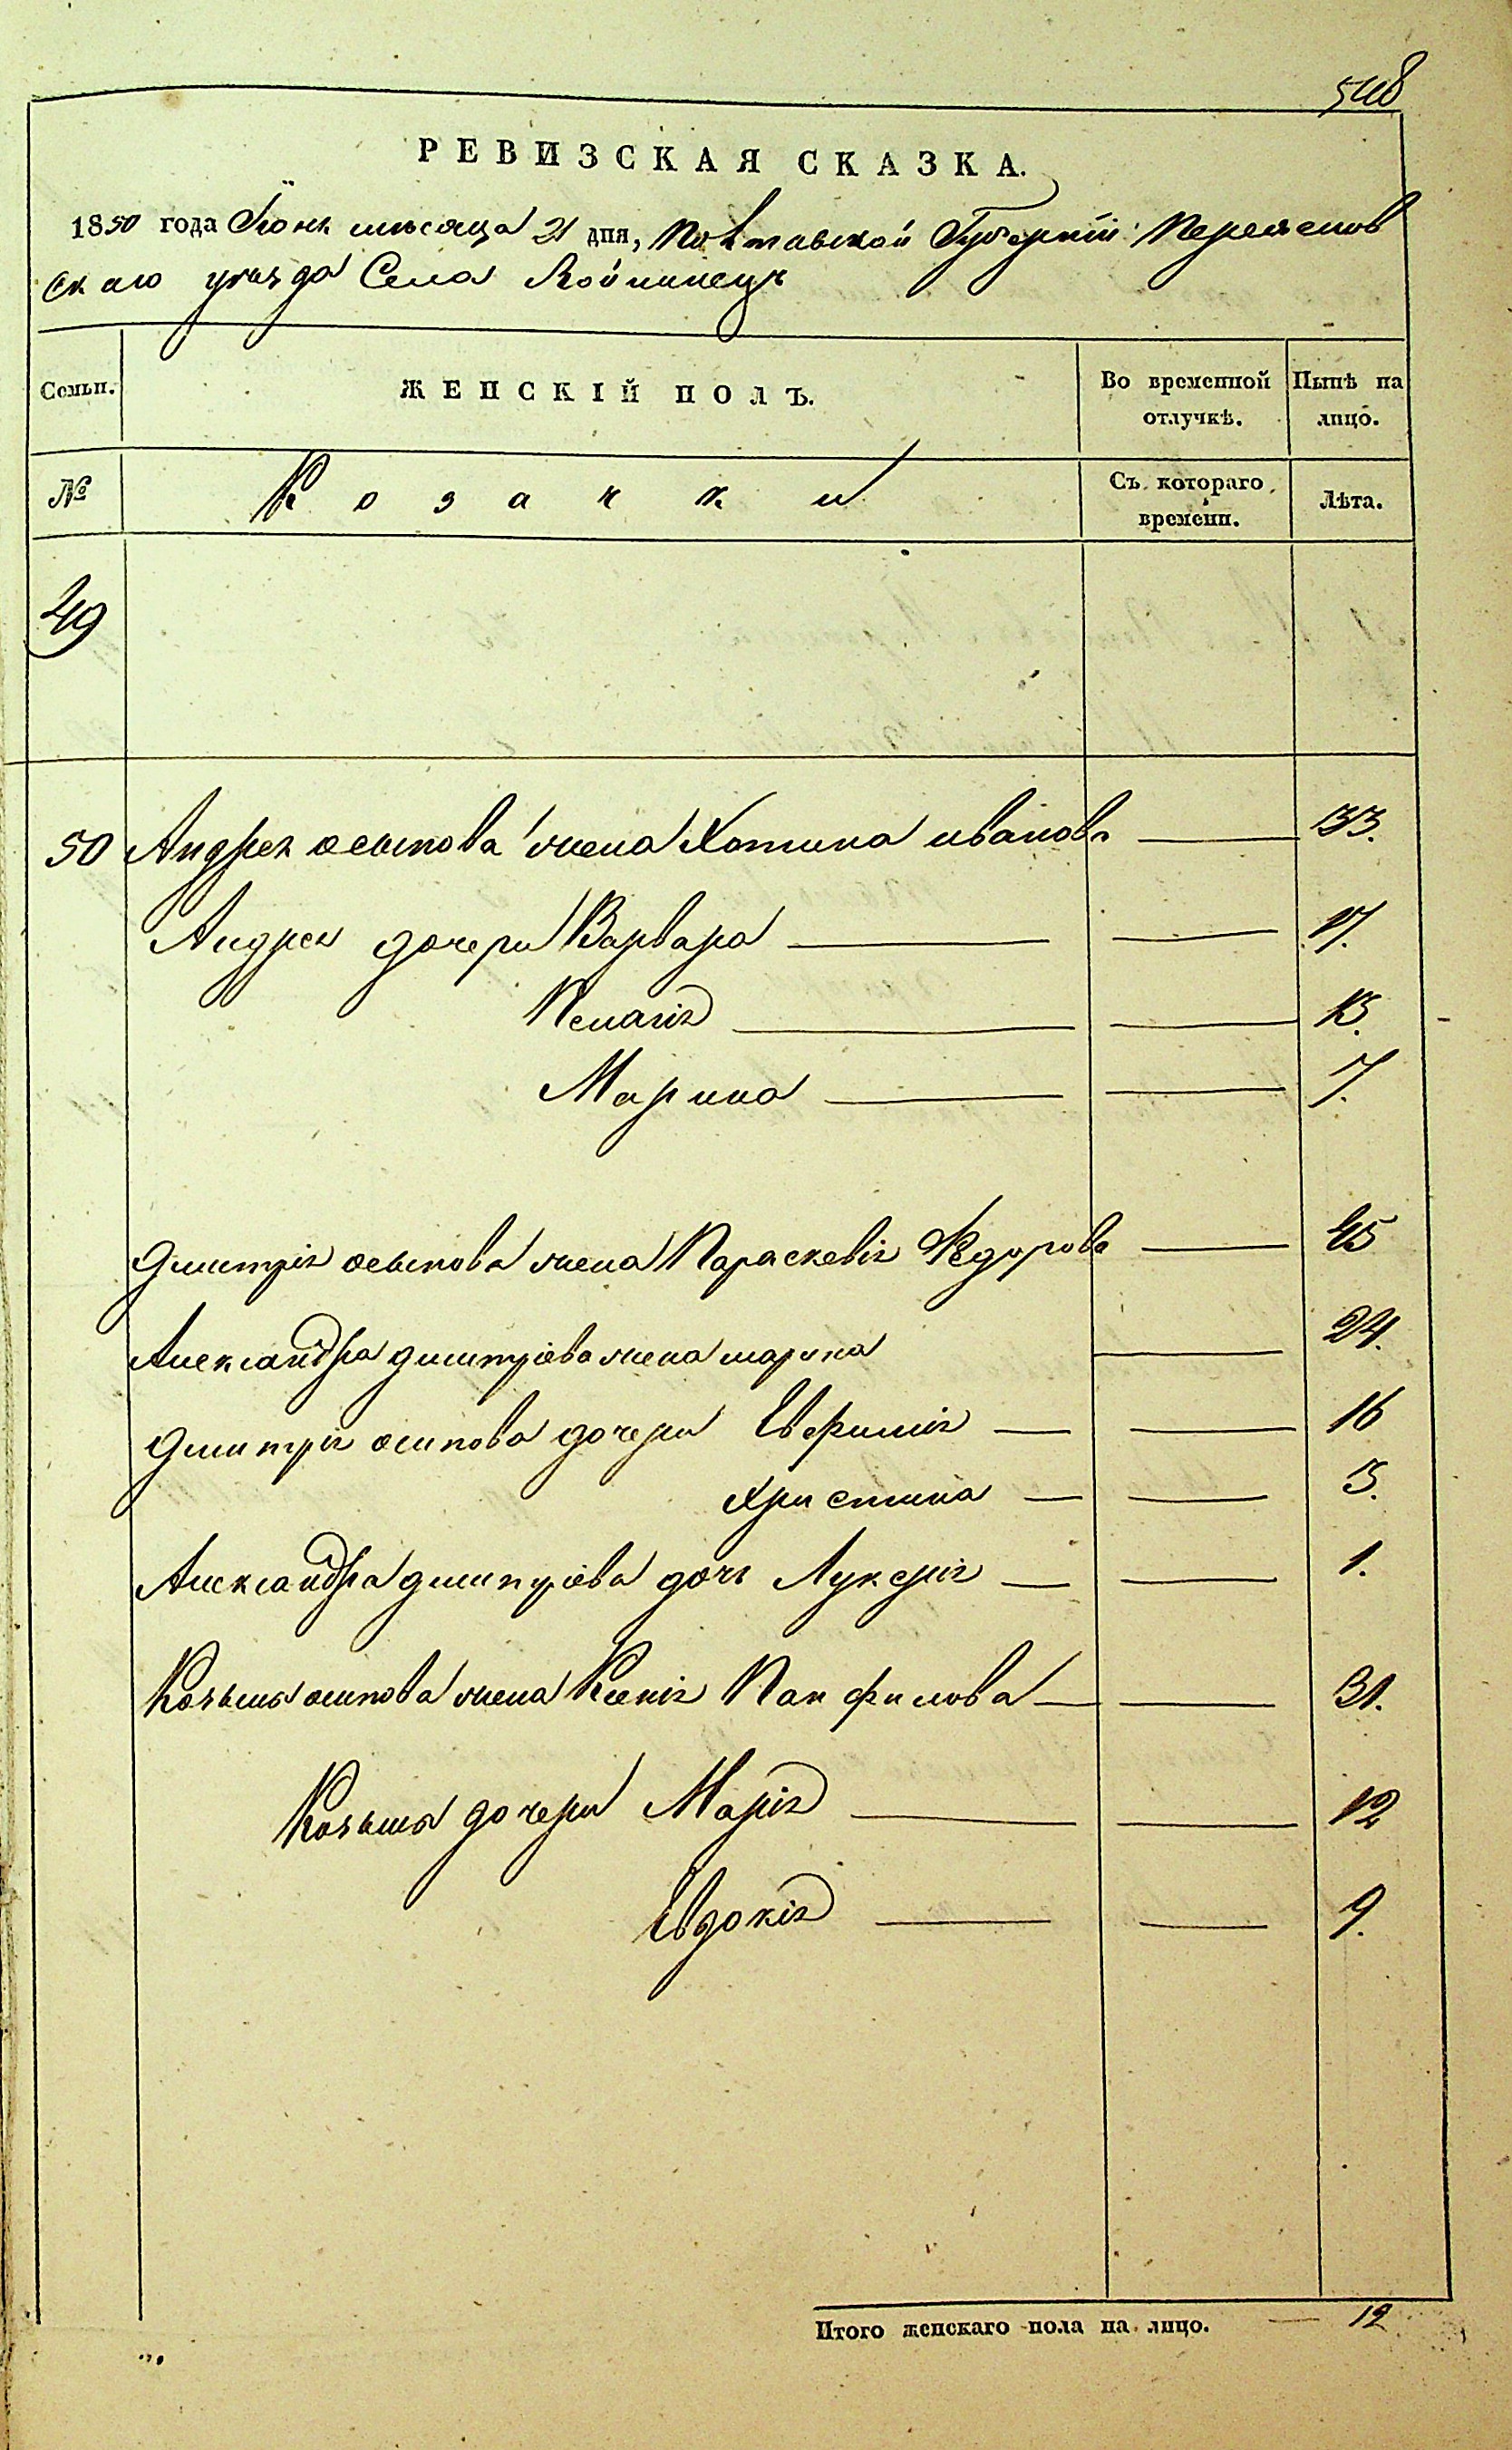 548
РЕВИЗСКАЯ СКАЗКА.
1850 года Іюня мѣсяца 21 дня, Полтавской Губерніи Переяслов
скаго уѣзда Села Войтинецъ
Семьи. ЖЕНСКІЙ ПОЛЪ. Во временной отлучкѣ. Нынѣ на лицо.
№ Козачки Съ котораго времени. Лѣта.
49
50 Андрея осипова жена Хотина иванова 33.
Андрея дочери Варвара 17.
Пелагія 13.
Марина 7.
Дмитрія осипова жена Параскевія Федорова 45
Александра дмитріева жена марина 24.
Дмитрія осипова дочери Евфимія 16
Христина 3.
Александра дмитріева дочь Лукерія 1.
Козьмы осипова жена Ксенія Панфилова 31.
Козьмы дочери Марія 12
Евдокія 9.
Итого женскаго пола на лицо. 12